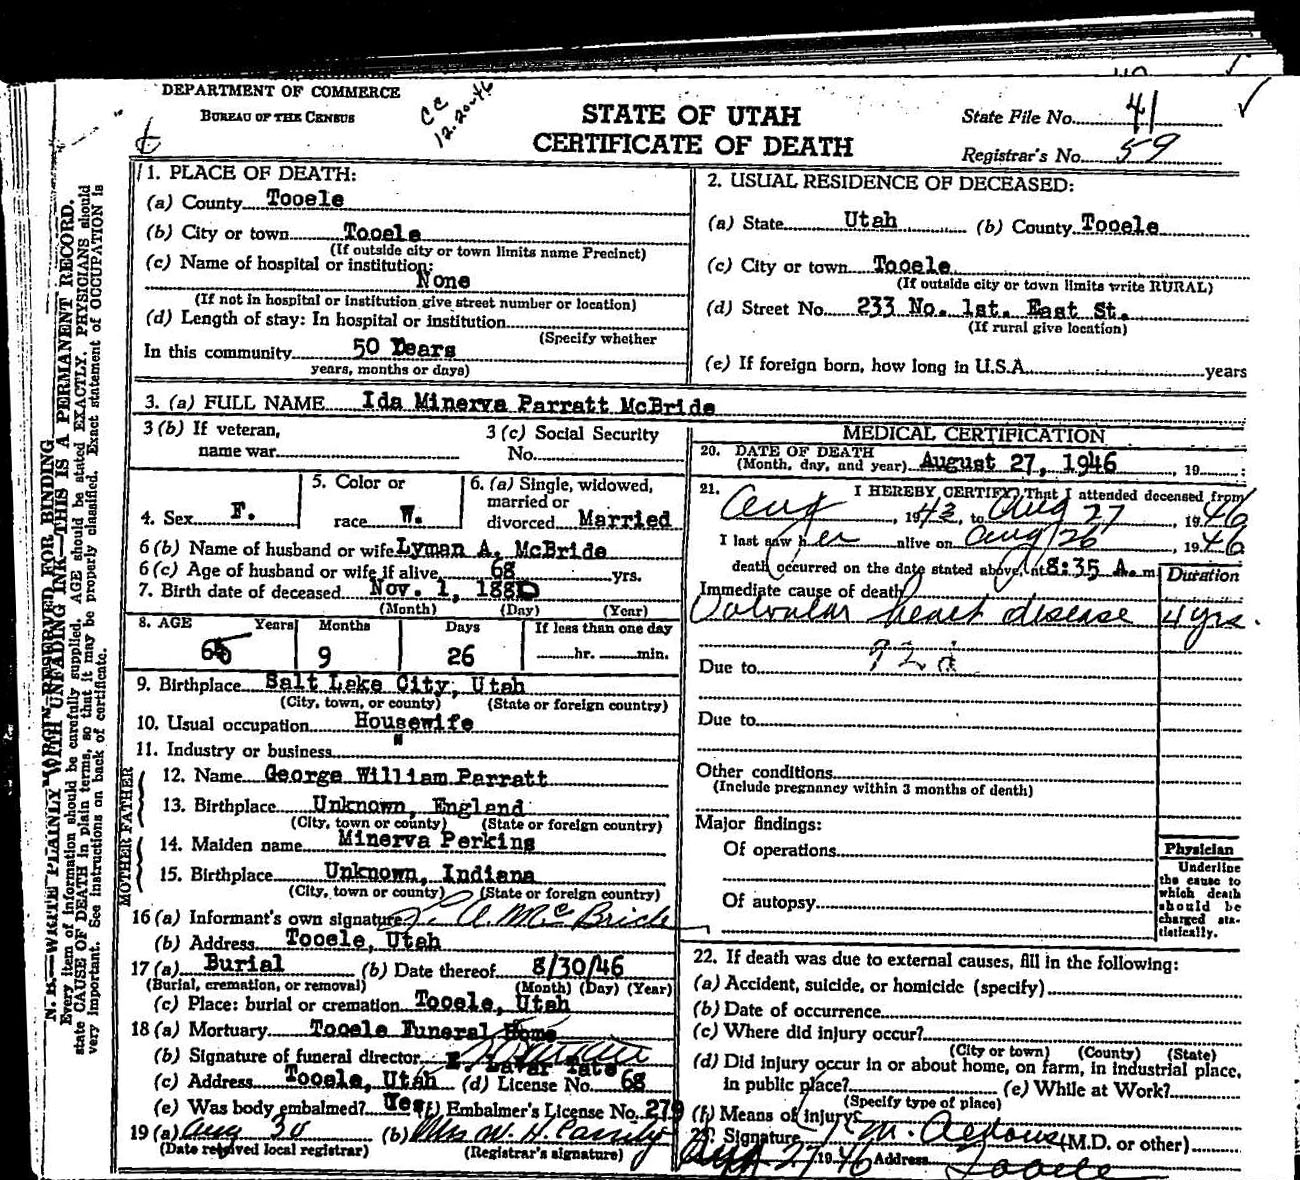 DEPARTMENT OF COMMERCE
BUREAU OF THE CENSUS
CC
12-20-46
STATE OF UTAH
CERTIFICATE OF DEATH
State File No. 41
Registrar's No. 59
N. B.—WRITE PLAINLY WITH UNFADING INK—THIS IS A PERMANENT RECORD.
Every item of information should be carefully supplied. AGE should be stated EXACTLY. PHYSICIANS should
state CAUSE OF DEATH in plain terms, so that it may be properly classified. Exact statement of OCCUPATION is
very important. See instructions on back of certificate.
MARGIN RESERVED FOR BINDING
1. PLACE OF DEATH:
(a) County Tooele
(b) City or town Tooele
(If outside city or town limits name Precinct)
(c) Name of hospital or institution:
None
(If not in hospital or institution give street number or location)
(d) Length of stay: In hospital or institution
(Specify whether
In this community 50 Years
years, months or days)
2. USUAL RESIDENCE OF DECEASED:
(a) State Utah (b) County Tooele
(c) City or town Tooele
(If outside city or town limits write RURAL)
(d) Street No. 233 No. 1st. East St.
(If rural give location)
(e) If foreign born, how long in U.S.A. years
3. (a) FULL NAME Ida Minerva Parratt McBride
3 (b) If veteran,
name war
3 (c) Social Security
No.
4. Sex F.
5. Color or
race W.
6. (a) Single, widowed,
married or
divorced Married
6 (b) Name of husband or wife Lyman A. McBride
6 (c) Age of husband or wife if alive 68 yrs.
7. Birth date of deceased Nov. 1, 1880
(Month) (Day) (Year)
8. AGE Years Months Days If less than one day
65 9 26 hr. min.
9. Birthplace Salt Lake City, Utah
(City, town, or county) (State or foreign country)
10. Usual occupation Housewife
11. Industry or business "
FATHER
12. Name George William Parratt
13. Birthplace Unknown, England
(City, town or county) (State or foreign country)
MOTHER
14. Maiden name Minerva Perkins
15. Birthplace Unknown, Indiana
(City, town or county) (State or foreign country)
16 (a) Informant's own signature L. A. McBride
(b) Address Tooele, Utah
17 (a) Burial (b) Date thereof 8/30/46
(Burial, cremation, or removal) (Month) (Day) (Year)
(c) Place: burial or cremation Tooele, Utah
18 (a) Mortuary Tooele Funeral Home
(b) Signature of funeral director Lavar Tate
(c) Address Tooele, Utah (d) License No. 68
(e) Was body embalmed? Yes (f) Embalmer's License No. 279
19 (a) Aug 30 (b) Mrs W. H. Cassity
(Date received local registrar) (Registrar's signature)
MEDICAL CERTIFICATION
20. DATE OF DEATH
(Month, day, and year) August 27, 1946, 19 :
21. I HEREBY CERTIFY, That I attended deceased from
Aug, 1942, to Aug 27, 1946
I last saw her alive on Aug 26, 1946
death occurred on the date stated above, at 8:35 A. m.
Duration
Immediate cause of death
Valvular heart disease 4 yrs.
Due to
Due to
Other conditions
(Include pregnancy within 3 months of death)
Major findings:
Of operations
Of autopsy
Physician
Underline
the cause to
which death
should be
charged sta-
tistically.
22. If death was due to external causes, fill in the following:
(a) Accident, suicide, or homicide (specify)
(b) Date of occurrence
(c) Where did injury occur?
(City or town) (County) (State)
(d) Did injury occur in or about home, on farm, in industrial place,
in public place? (e) While at Work?
(Specify type of place)
(f) Means of injury
23. Signature (M.D. or other)
Aug 27 1946 Address Tooele